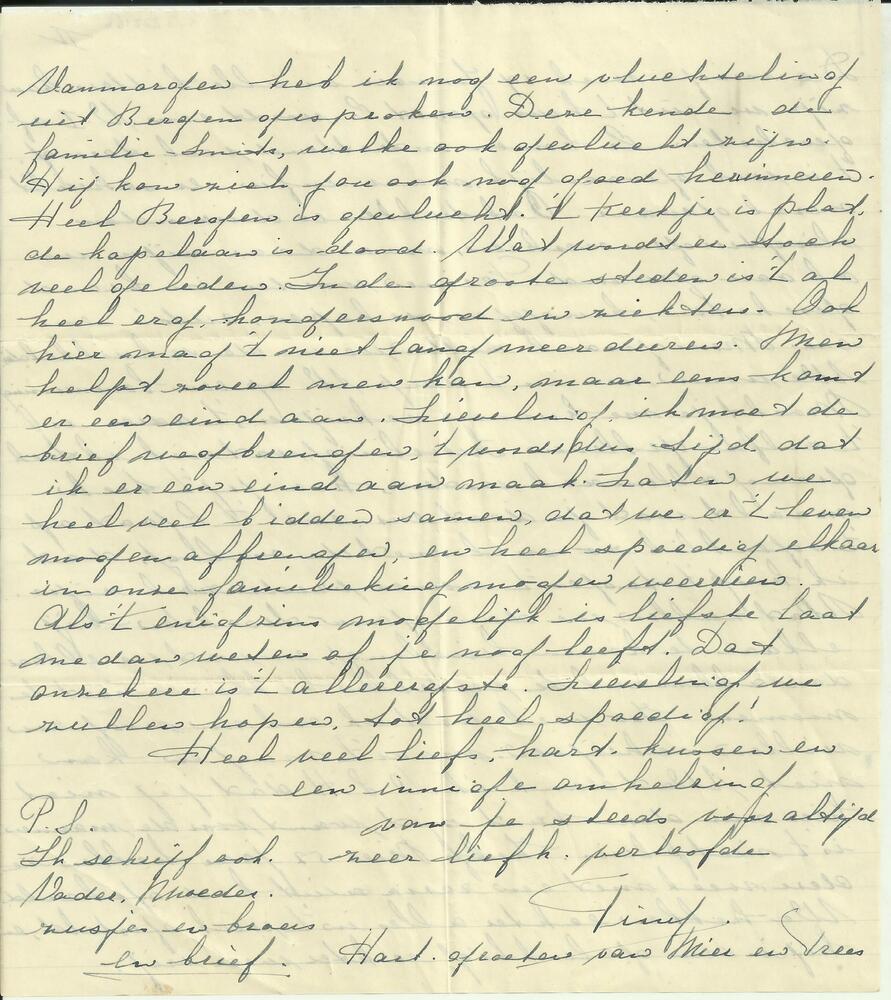 Vanmorgen heb ik nog een vluchteling
uit Bergen gesproken. Deze kende de
familie Smits, welke ook gevlucht zijn.
Hij kon zich jou ook nog goed herinneren.
Heel Bergen is gevlucht. 't Keeltje is plat,
de kapelaan is dood. Wat wordt er toch
veel geleden. In de groote steden is 't al
heel erg, hongersnood en ziekten. Ook
hier mag 't niet lang meer duren. Men
helpt zoveel men kan, maar eens komt
er een eind aan. Lieveling, ik moet de
brief wegbrengen, 't wordt dus tijd dat
ik er een eind aan maak. Laten we
heel veel bidden samen, dat we er 't leven
mogen afbrengen, en heel spoedig elkaar
in onze familiekring mogen weerzien.
Als 't enigzins mogelijk is liefste laat
me dan weten of je nog leeft. Dat
onzekere is 't allerergste. Lieveling we
zullen hopen, tot heel spoedig!
Heel veel liefs, hart. kussen en
een innige omhelzing
van je steeds voor altijd
zeer liefh. verloofde
Tiny.
P.S.
Ik schrijf ook.
Vader, Moeder.
zusjes en broers
en brief.
Hart. groeten van Mies en Trees